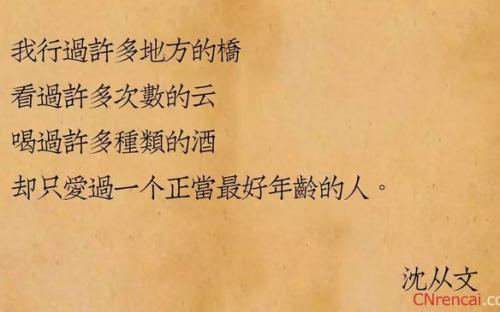 我行過許多地方的橋
看過許多次數的云
喝過許多種類的酒
却只愛過一个正當最好年齡的人。
沈从文
CNrencai.co